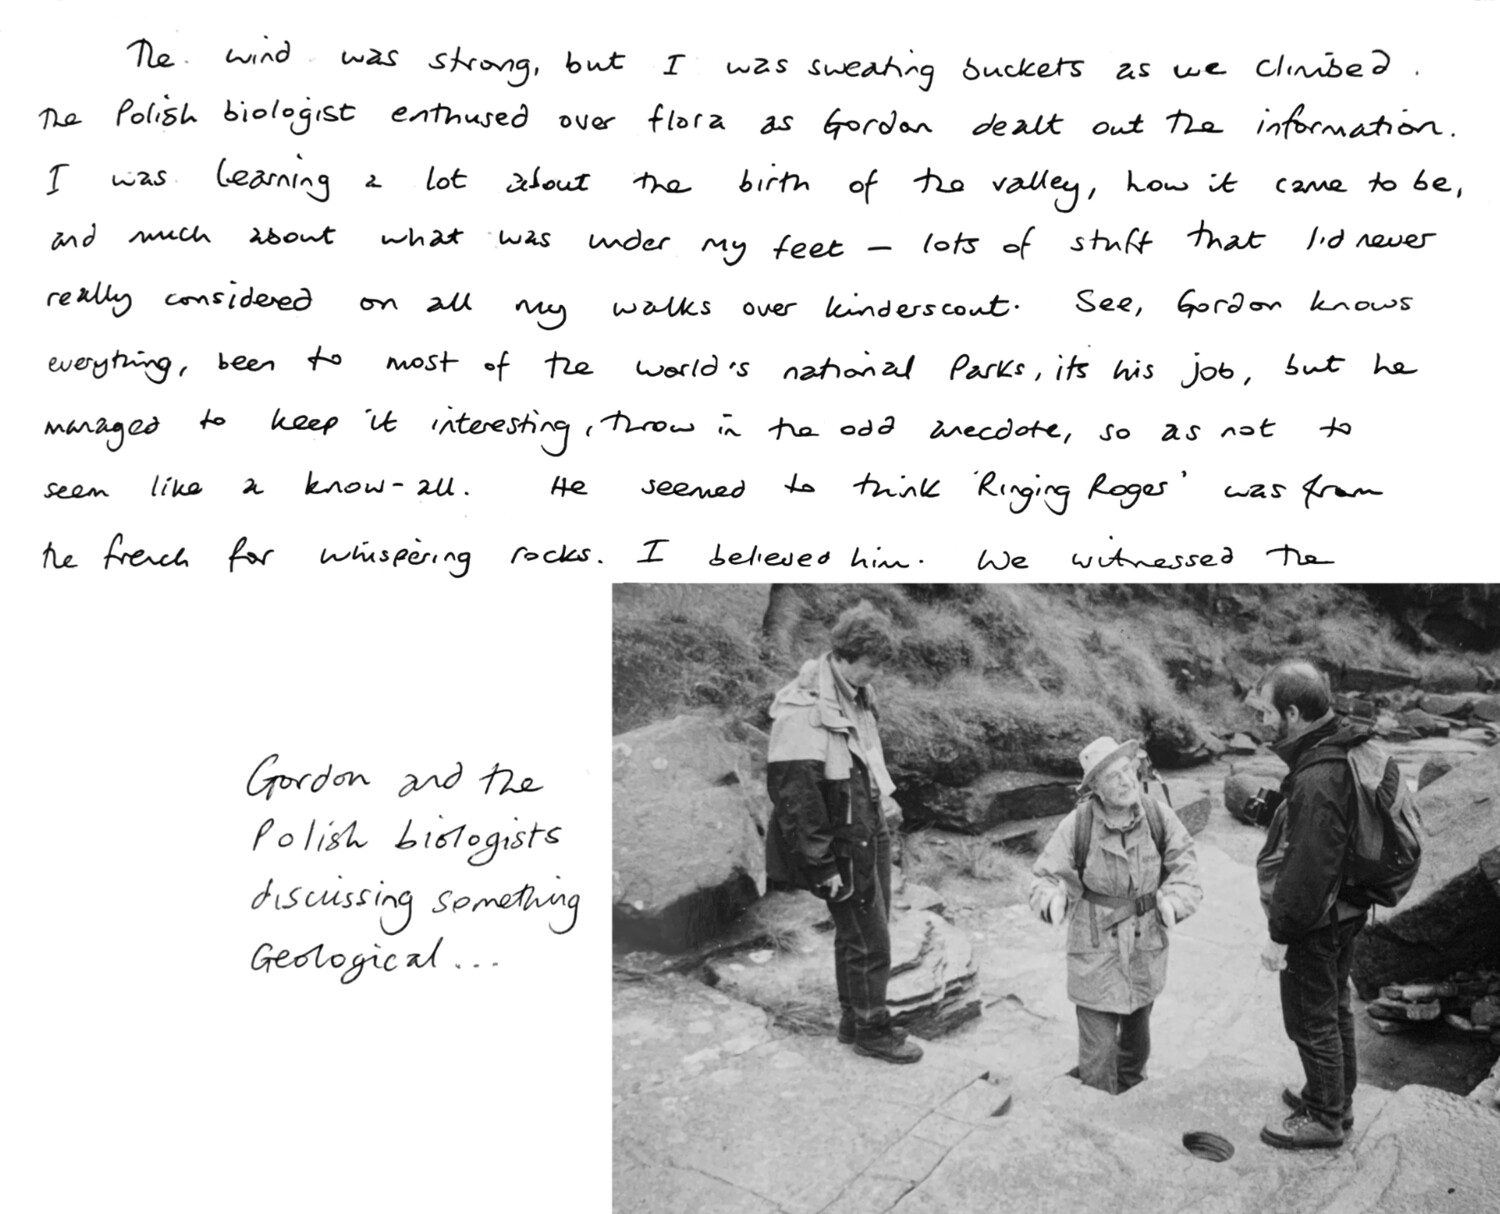 The wind was strong, but I was sweating buckets as we climbed.
The Polish biologist enthused over flora as Gordon dealt out the information.
I was learning a lot about the birth of the valley, how it came to be,
and much about what was under my feet – lots of stuff that I'd never
really considered on all my walks over kinderscout. See, Gordon knows
everything, been to most of the world's national Parks, its his job, but he
managed to keep it interesting, throw in the odd anecdote, so as not to
seem like a know-all. He seemed to think 'Ringing Roges' was from
the french for whispering rocks. I believed him. We witnessed the
Gordon and the
Polish biologists
discussing something
Geological...